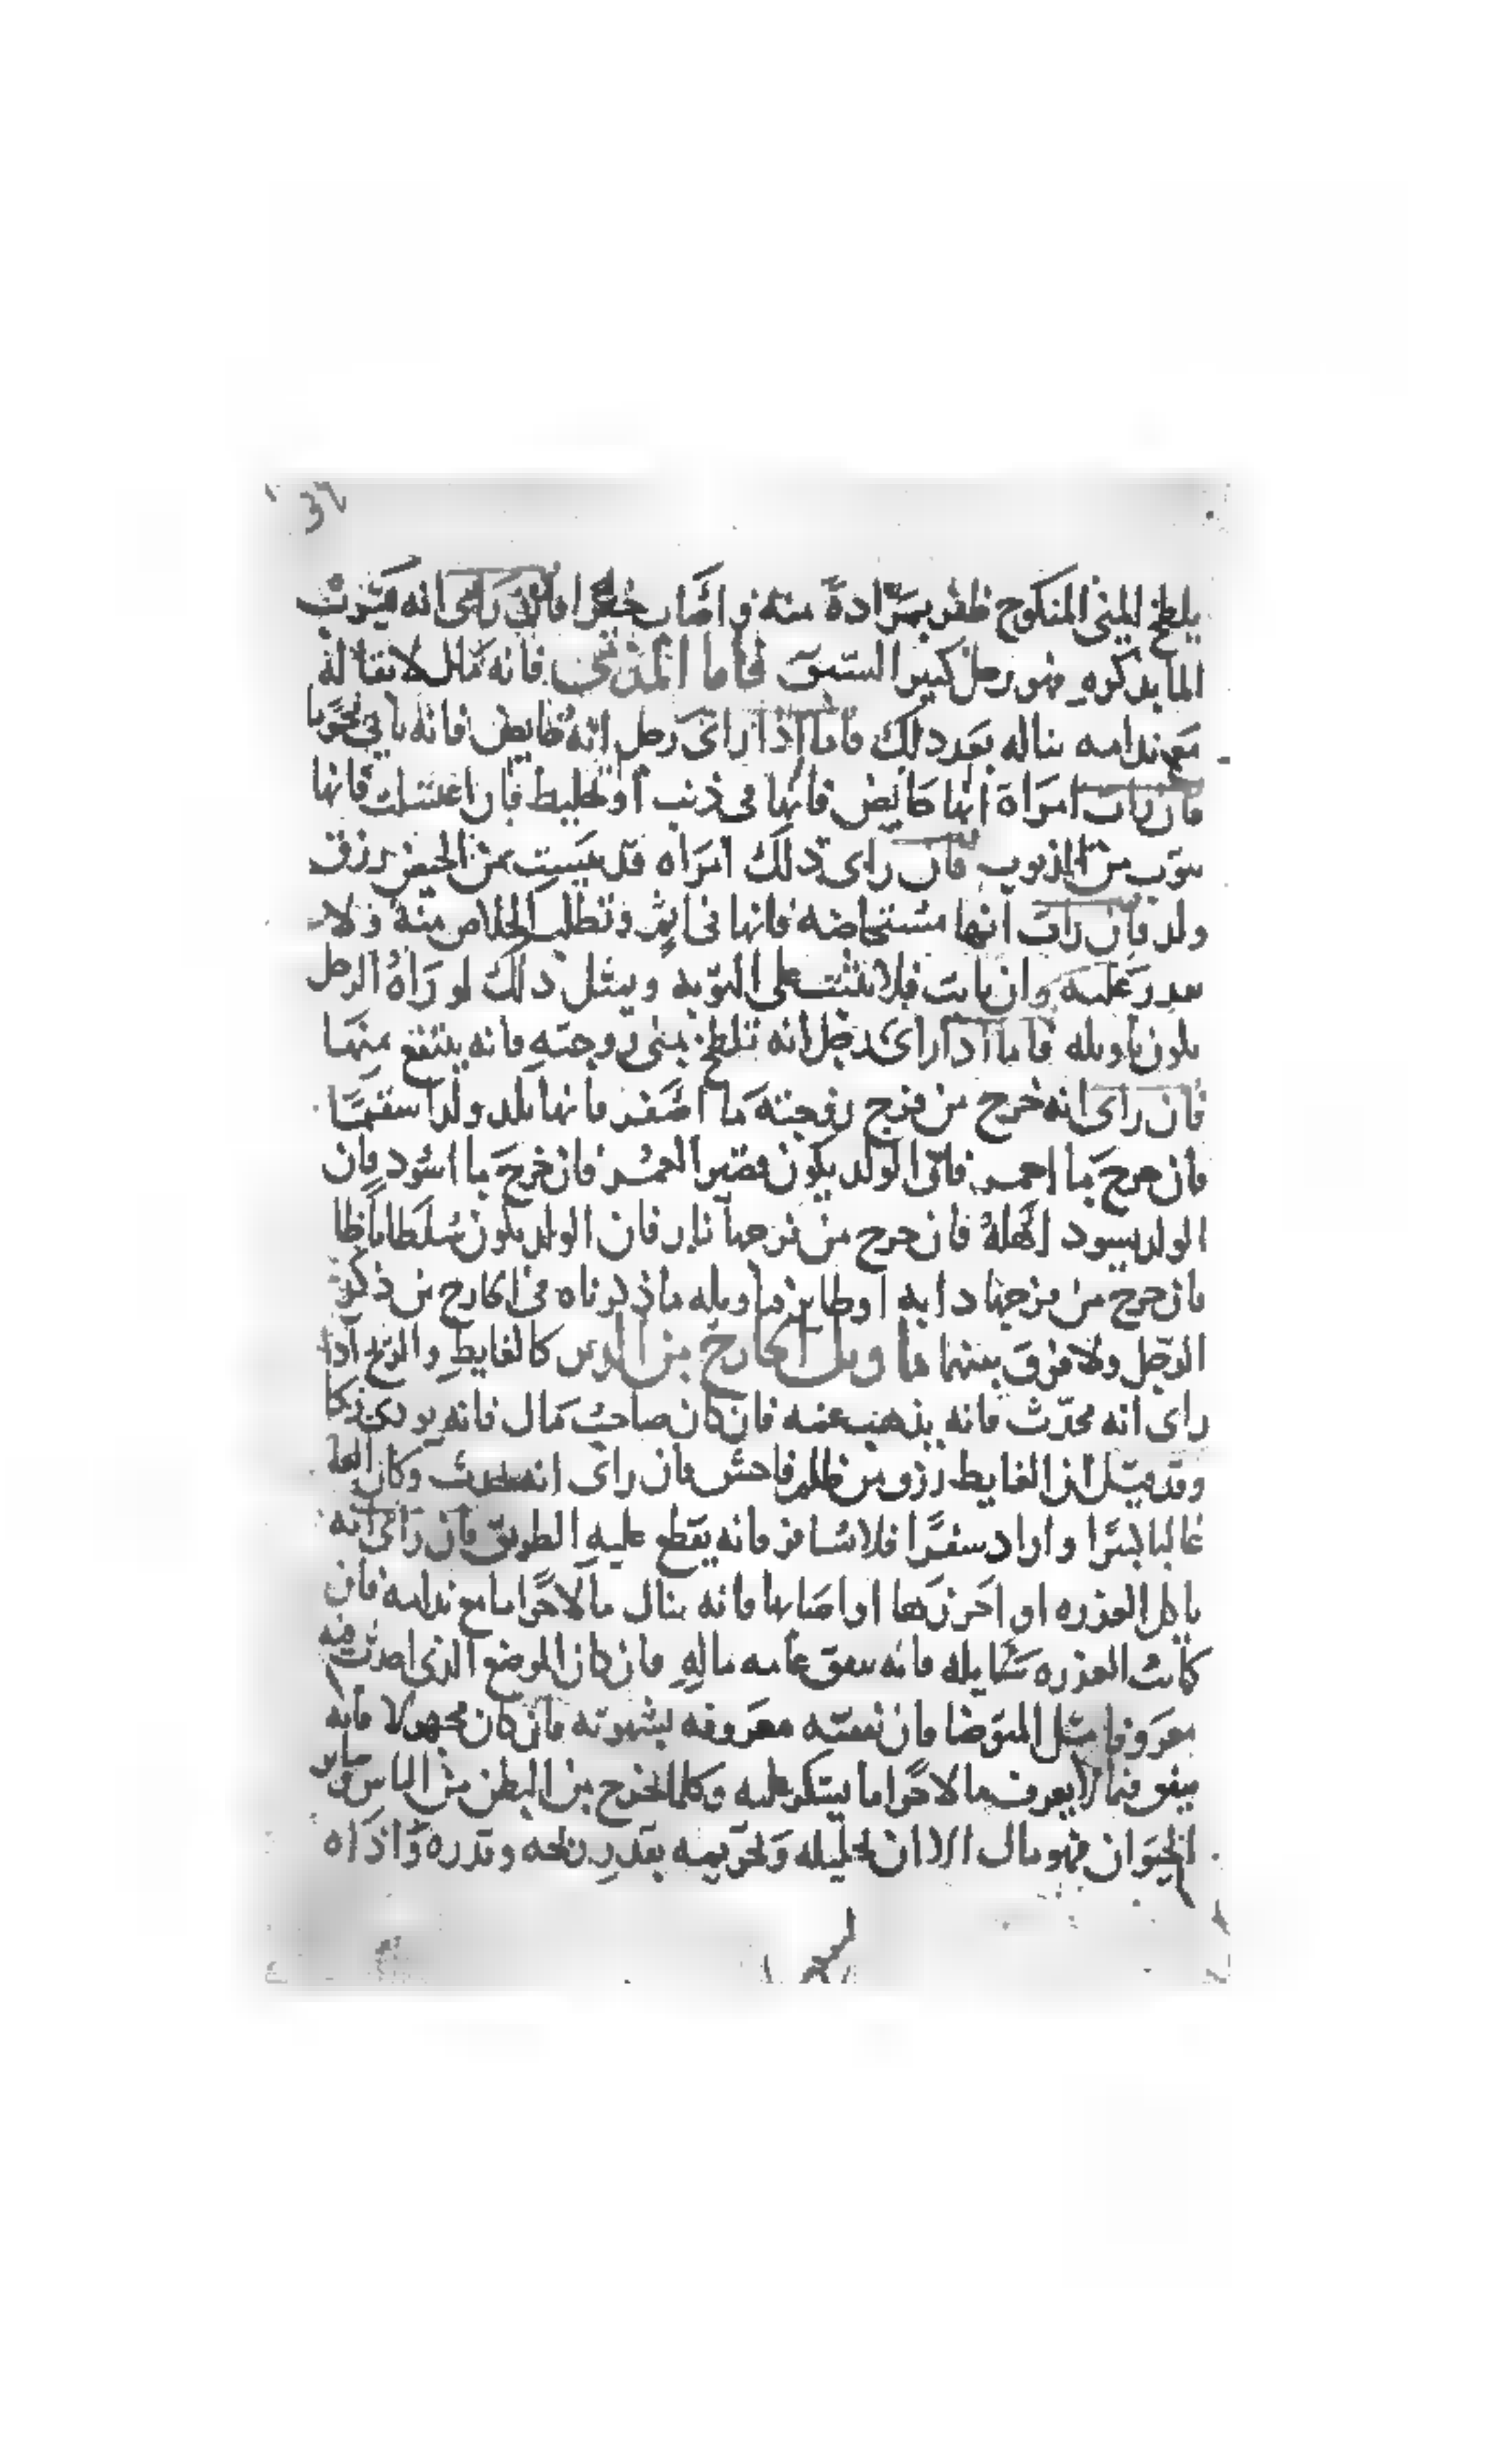 يلطخ المنى المنكوح ظفر بمرادة منه واصاب خيرا فان راى انه يشرب
الما بذكره فهو رجل كثير الشبق فاما المذى فانه مال لا بقا له
مع ندامه يناله بعد ذلك فاما اذا راى رجل انه حايض فانه ياتى محرما
فان رات امراة انها حايض فانها فى ذنب او تخليط فان اغتسلت فانها
تتوب من الذنوب فان راى ذلك امراه قد يبست من الحيض رزق
ولد فان رات انها مستحاضه فانها فى اثم وتطلب الخلاص منه ولا
تقدر عليه وان تابت فلا تثبت على التوبه ومثل ذلك لو راه الرجل
يكون تاويله فاما اذا راى رجل انه تلطخ بمنى زوجته فانه ينتفع منها
فان راى انه خرج من فرج زوجته ما اصفر فانها تلد ولدا سقيما
فان خرج ما احمر فان الولد يكون قصير العمر فان خرج ما اسود فان
الولد يسود اهله فان خرج من فرجها نار فان الولد يكون سلطانا ظا
فان خرج من فرجها دابه او طاير فتاويله ما ذكرناه فى الخارج من ذكر
الرجل ولا فرق بينهما تاويل الخارج من الدبر كالغايط والريح اذا
راى انه محدث فانه يذهب غمه فان كان صاحب مال فانه يودى زكا
وقد قيل ان الغايط رزق من ظلم فاحش فان راى انه يحدث وكان الغا
غالبا يسرا واراد سفرا فلا يسافر فانه يقطع عليه الطريق فان راى انه
ياكل العذره او احرزها او اصابها فانه ينال مالا حراما مع ندامه فان
كانت العذره سايله فانه ينفق عامه ماله فان كان الموضع الذى احدث فيه
معروفا مثل المتوضا فان نفقته معروفه بشهوته فان كان مجهولا فانه
ينفق فيما لا يعرف مالا حراما يشكر عليه وكلما يخرج من البطن من الناس وساير
الحيوان فهو مال الا ان تحليله وتحريمه بقدر ريحه وقدره واذاه